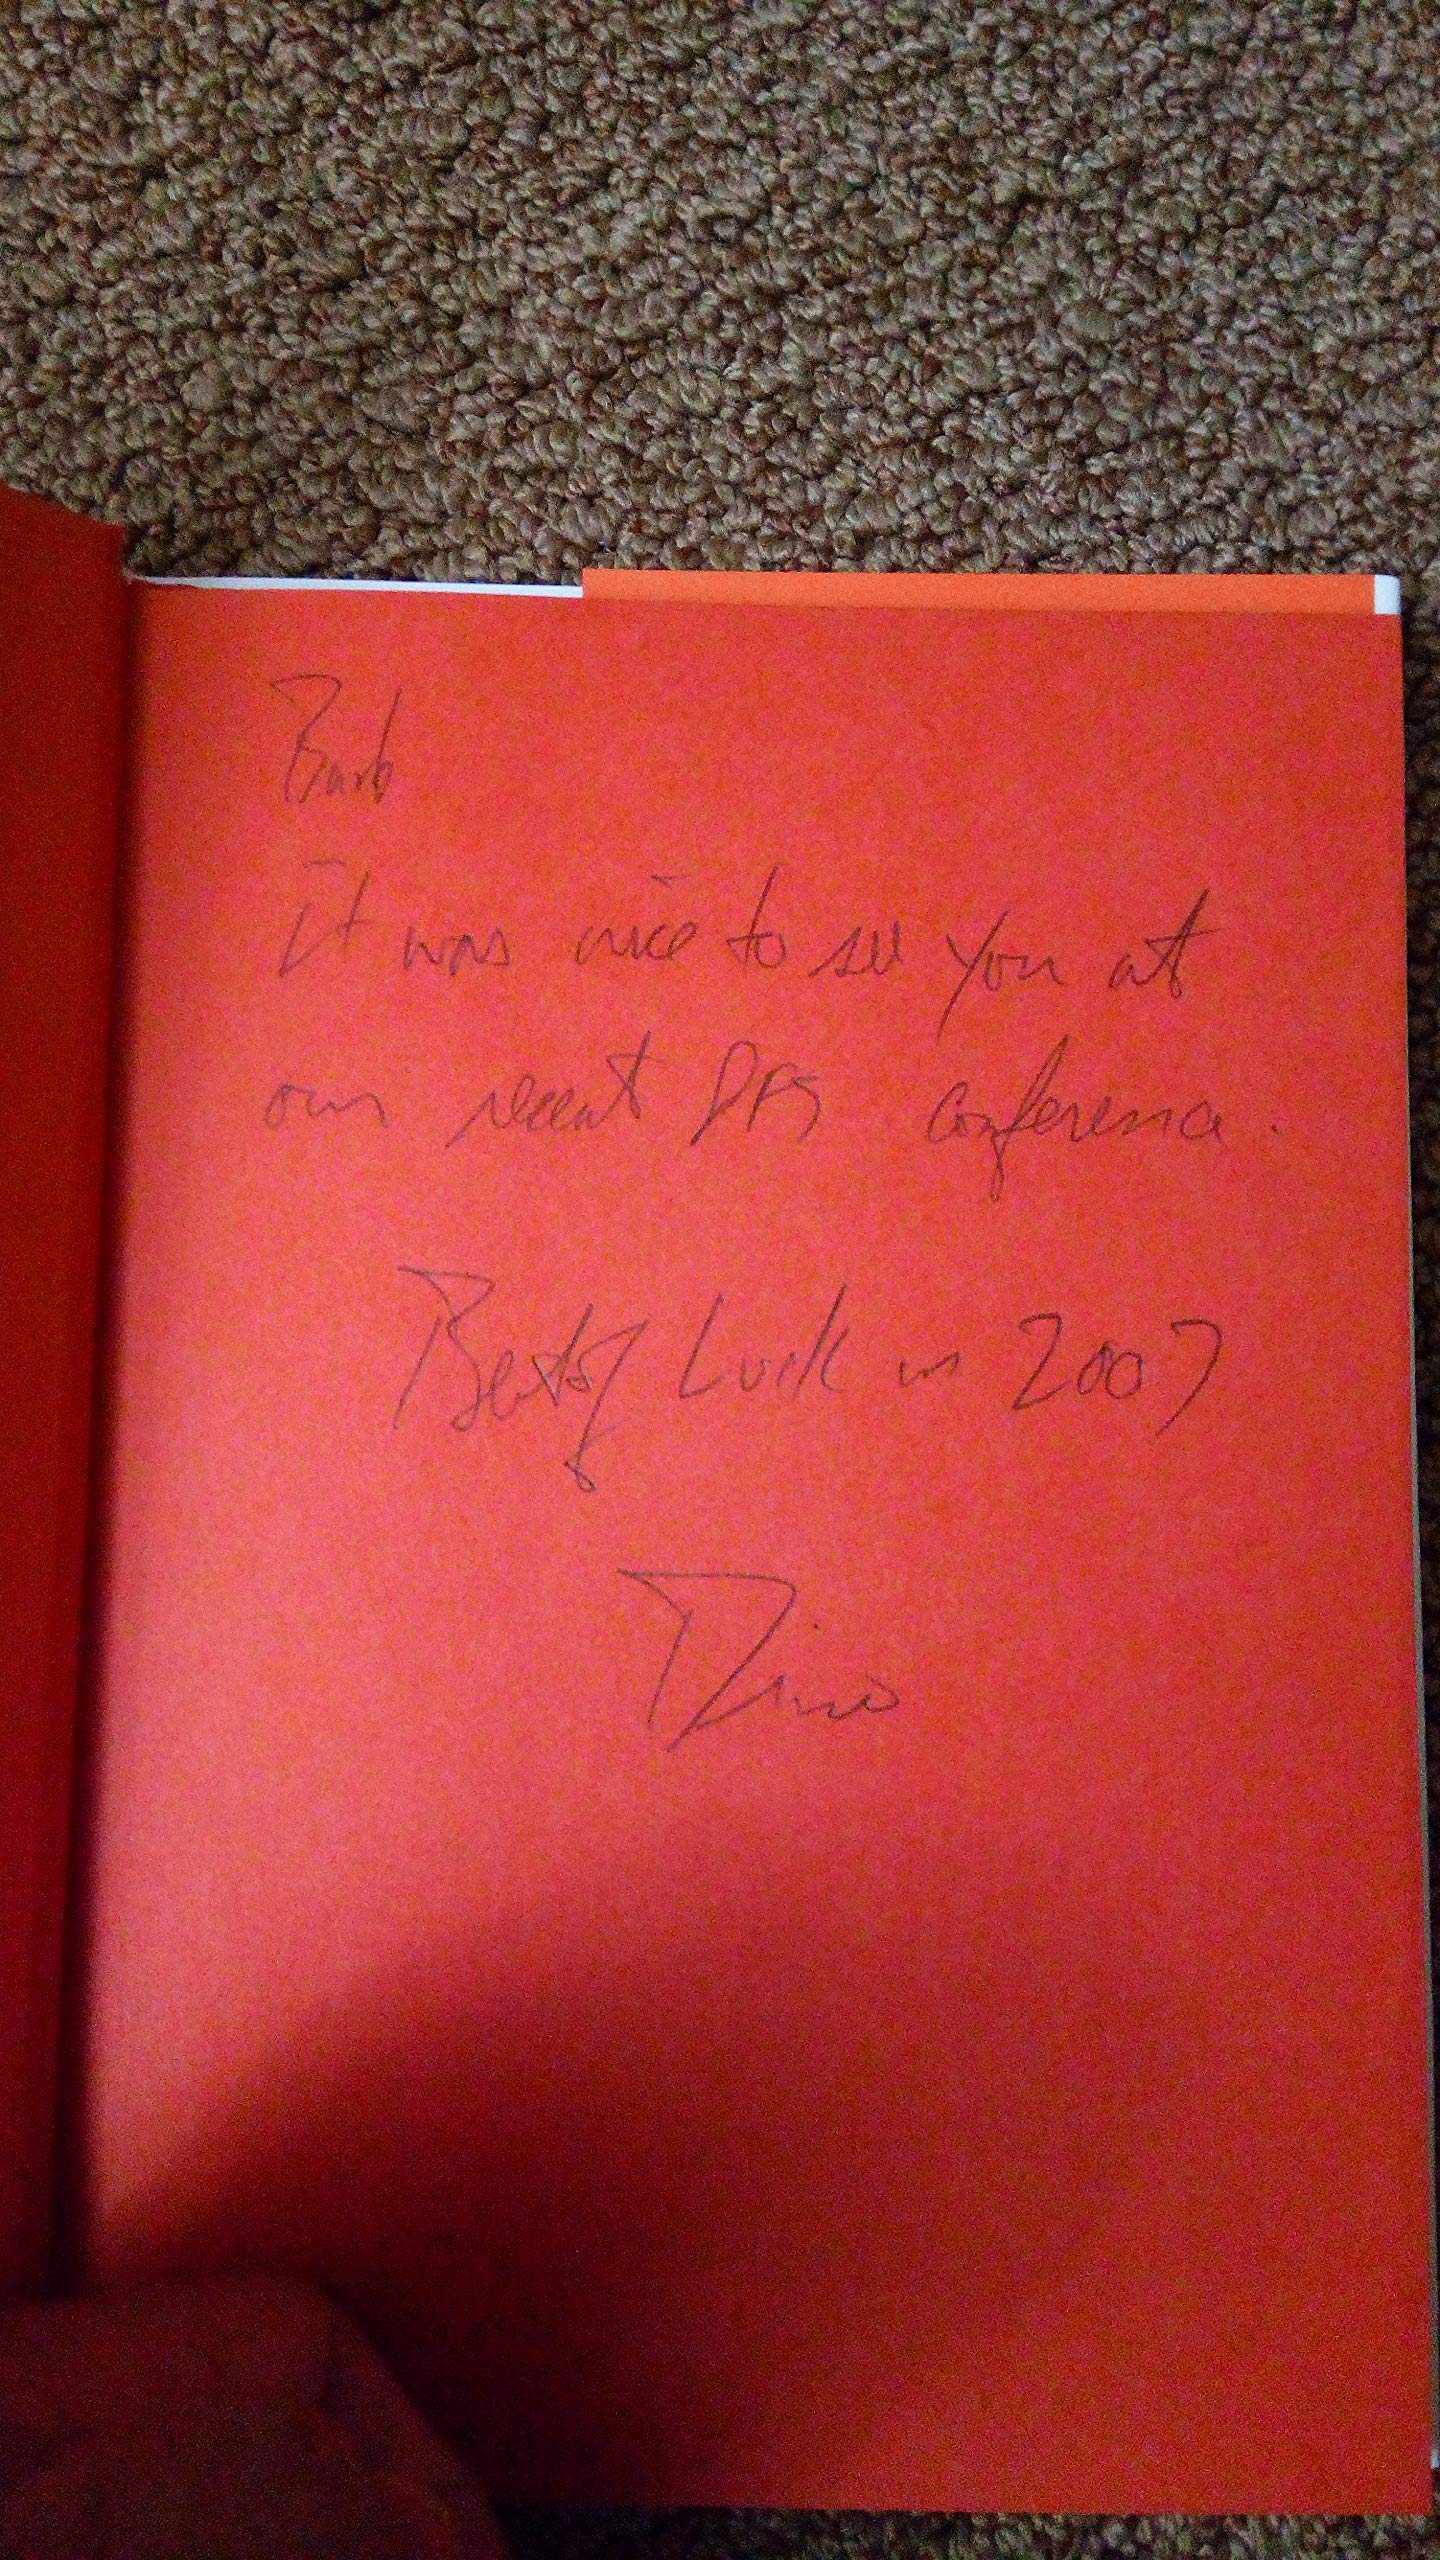 Barb
it was nice to see you at
our recent DFS conference.
Best of Luck in 2007
Dino